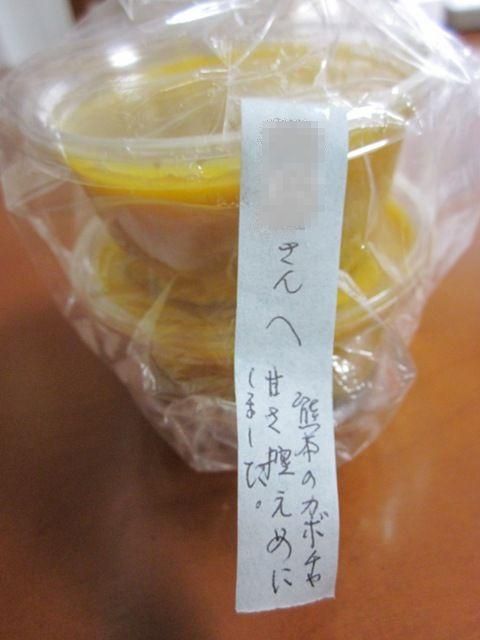 さんへ
熊本のカボチャ
甘さ控えめに
しました。